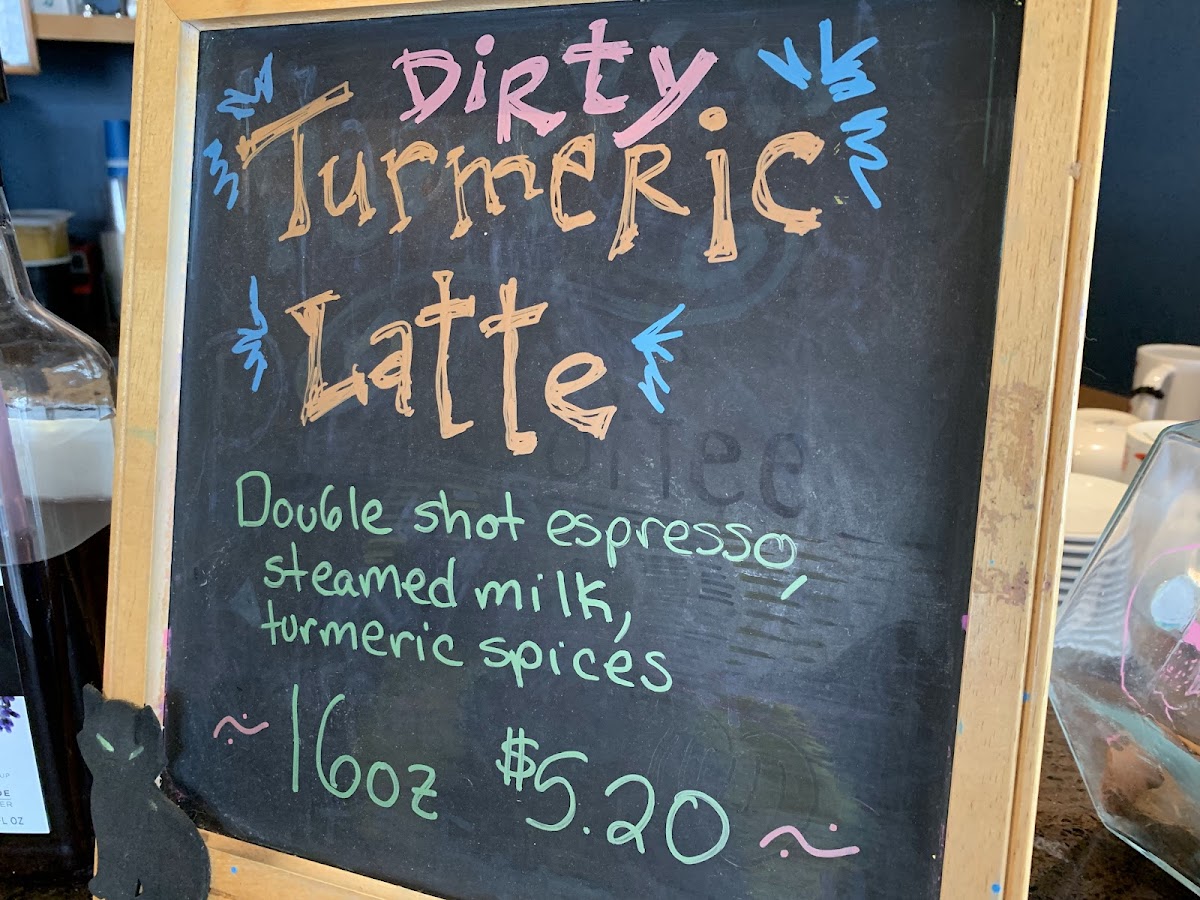 Dirty
Turmeric
Latte
Double shot espresso,
steamed milk,
turmeric spices
~ 16oz $5.20 ~